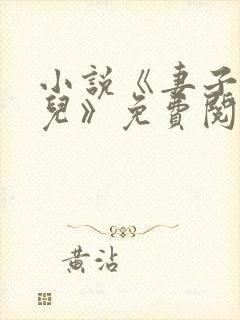 小說《妻子
兒》免費閱
黃沾